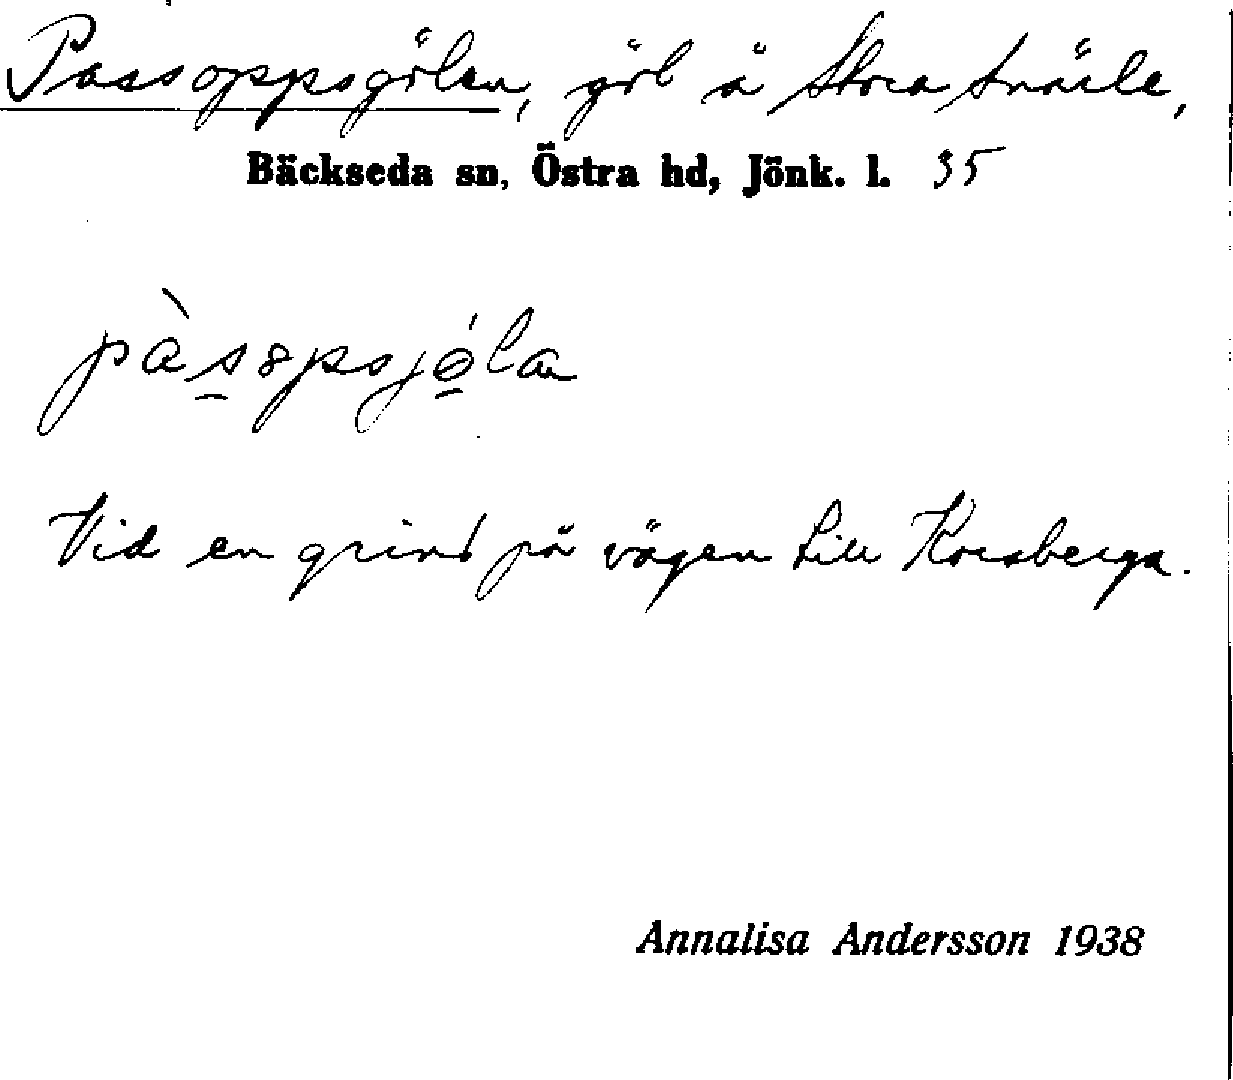 Passoppsgölen, göl å Stora
Bäckseda sn, Östra hd, Jönk. l. 35
pàsopsjǿla
Vid en grind på vägen till Korsberga.
Annalisa Andersson 1938